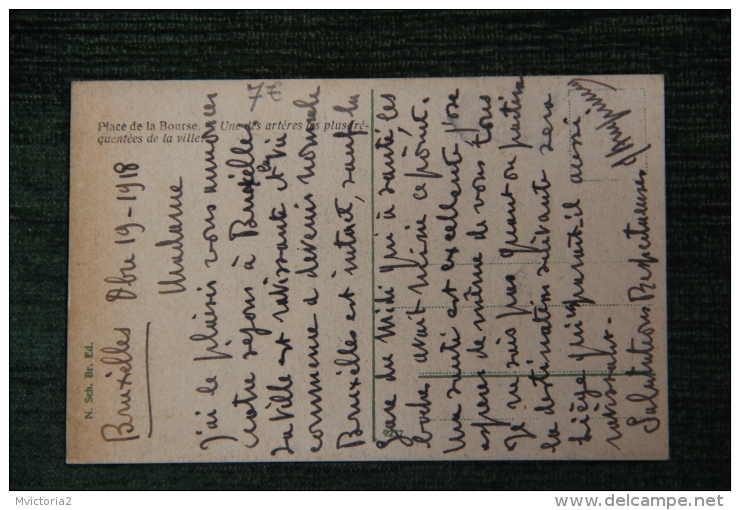 Place de la Bourse. Une des artères les plus fré-
quentées de la ville.
N. Sch. Br. Ed.
7€
Bruxelles 19-1918
Madame
J'ai le plaisir vous annoncer
notre séjour à Bruxelles.
La ville est ravissante et la vie
commence a devenir normale
Bruxelles est intact, sauf la
Gare du Midi qui à sauté les
boches avait miné ce point.
Ma santé est excellente j'ose
espérer de même de vous tous
Je ne sais pas quand on partira
la destination suivante sera
Liège qui parait-il aussi
ravissant.
Salutations Respectueuses
Mvictoria2
http://www.delcampe.net